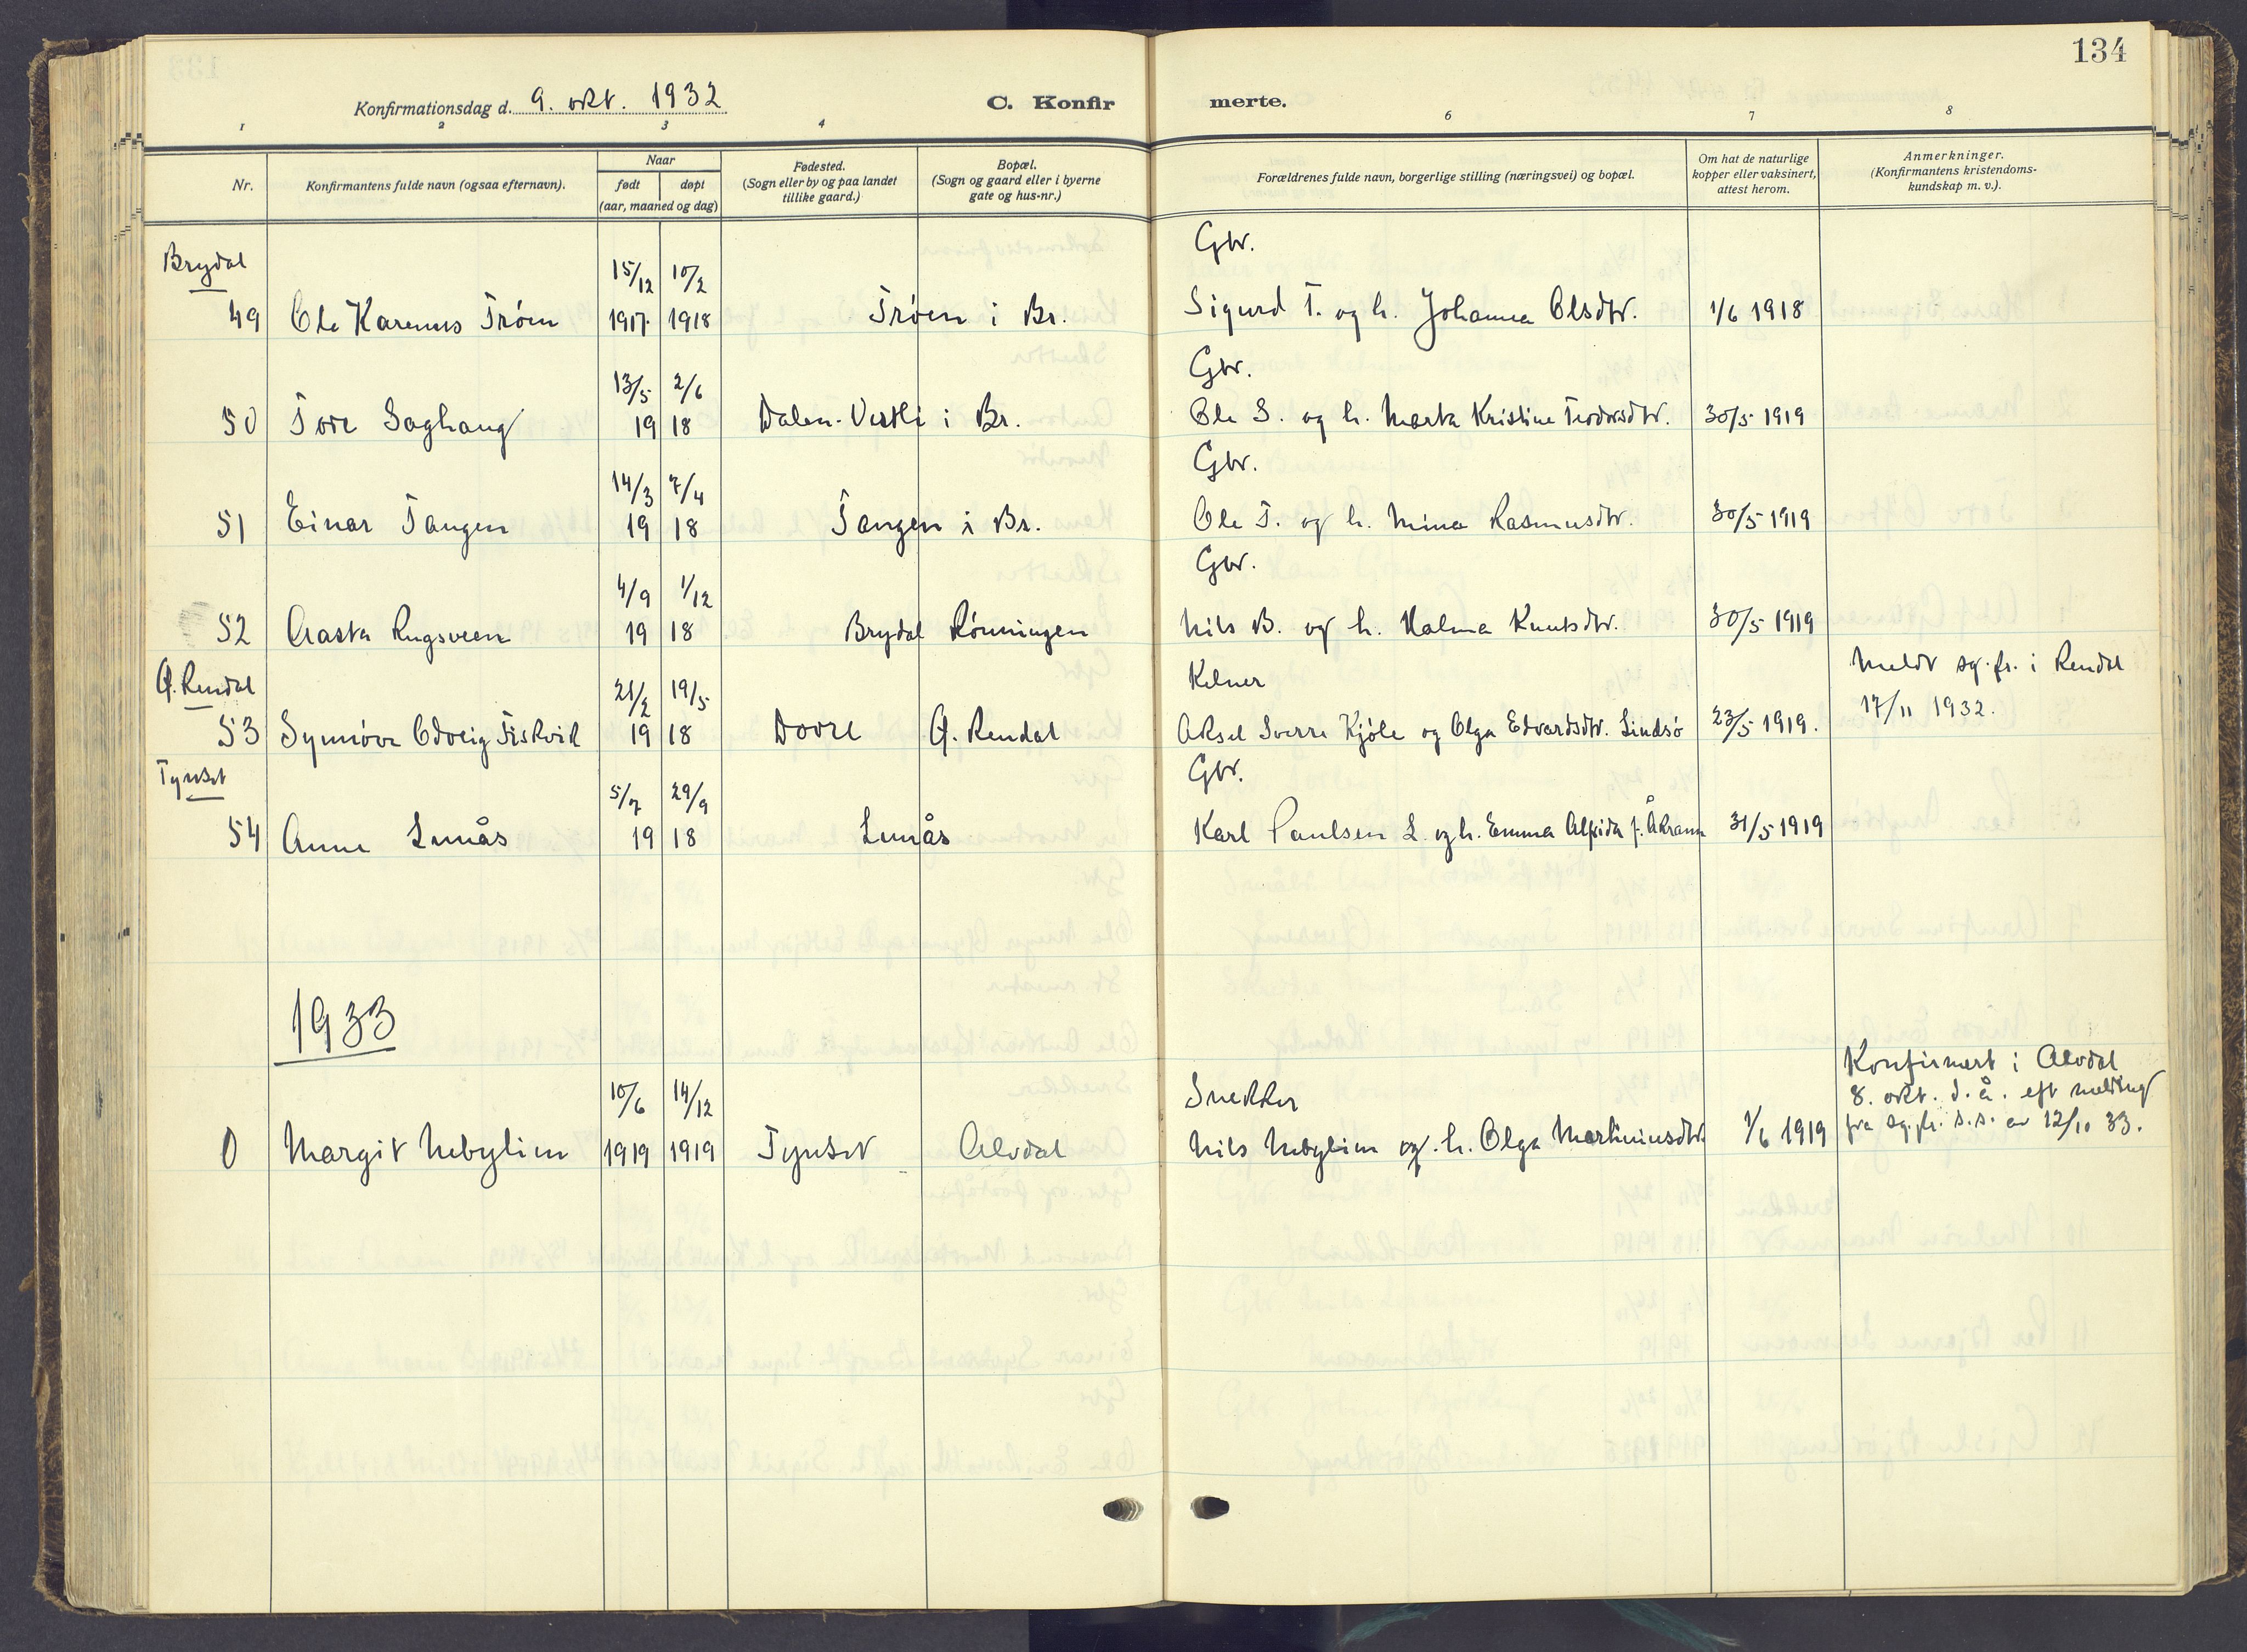 134
Konfirmationsdag d. 9. okt. 1932
C. Konfirmerte.
1 2 3 4 6 7 8
Nr.
Konfirmantens fulde navn (ogsaa efternavn).
Naar
født døpt
(aar, maaned og dag)
Fødested.
(Sogn eller by og paa landet
tillike gaard.)
Bopæl.
(Sogn og gaard eller i byerne
gate og hus-nr.)
Forældrenes fulde navn, borgerlige stilling (næringsvei) og bopæl.
Om hat de naturlige
kopper eller vaksinert,
attest herom.
Anmerkninger.
(Konfirmantens kristendoms-
kundskap m. v.).
Brydal 15/12 10/2 Gbr.
49 Ole Karenus Trøen 1917 1918 Trøen i Br. Sigurd T. og h. Johanna Olsdtr. 1/6 1918
13/5 2/6 Gbr.
50 Tore Saghaug 19 18 Dalen-Vestli i Br. Ole S. og h. Marta Kristine 30/5 1919
14/3 7/4 Gbr.
51 Einar Tangen 19 18 Tangen i Br. Ole T. og h. Mina Rasmusdtr. 30/5 1919
4/9 1/12 Gbr.
52 Aasta Rugsveen 19 18 Brydal Rønningen Nils B. og h. Halma Knutsdtr. 30/5 1919
Ø. Rendal 21/2 19/5 Kelner Meldt sg.pr. i Rendal
53 Synnøve Odveig Fiskvik 19 18 Dovre Ø. Rendal Aksel Sverre Kjøle og Olga Edvardsdtr. Lindsø 23/5 1919. 17/11 1932.
Tynset 5/7 29/9 Gbr.
54 Anne Lunås 19 18 Lunås Karl Paulsen L. og h. Emma Alfida f. Åkrann 31/5 1919
1933
10/6 14/12 Snekker Konfirmert i Alvdal
8. okt. d.å. eft melding
0 Margit Nebylien 1919 1919 Tynset Alvdal Nils Nebylien og h. Olga Martiniusdtr. 1/6 1919 fra sg.pr. s.s. av 12/10 33.